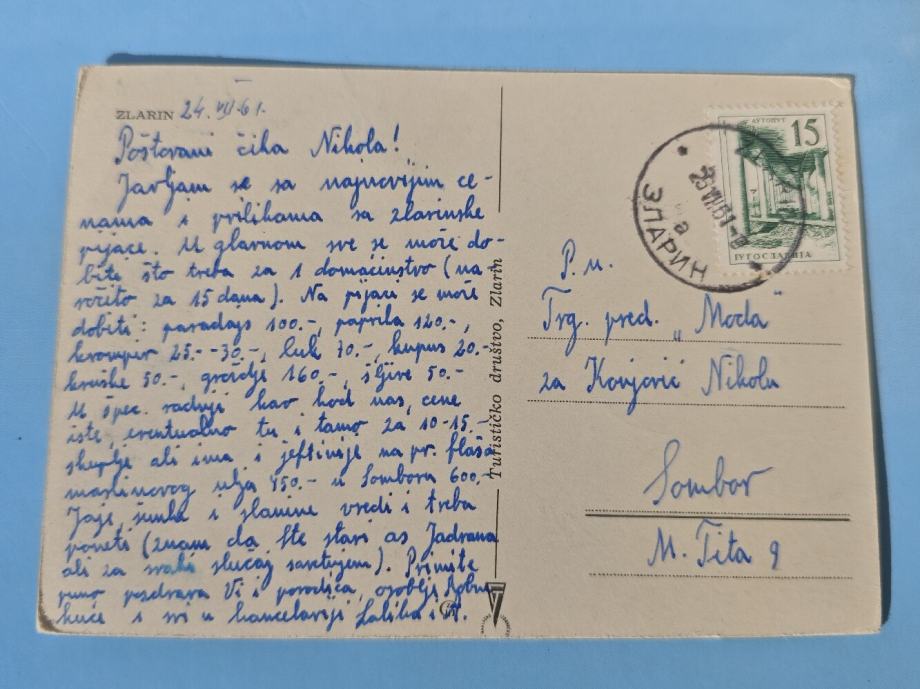 ZLARIN 24. VII. 61.
Poštovani čika Nikola!
Javljam se sa najnovijim ce-
nama i prilikama sa zlarinske
pijace. U glavnom sve se može do-
biti što treba za 1 domaćinstvo (na-
ročito za 15 dana). Na pijaci se može
dobiti: paradajs 100.-, paprika 120.-,
krompir 25.--30.-, luk 70.-, kupus 20.-
kruške 50.-, grožđje 160.-, šljive 50.-
U špec. radnji kao kod nas, cene
iste, eventualno tu i tamo za 10-15.-
skuplje ali ima i jeftinije na pr. flaša
maslinovog ulja 450.- u Somboru 600.-
Jaje, šunke i slanine vredi i treba
poneti (znam da ste stari as Jadrana
ali za svaki slučaj savetujem). Primite
puno pozdrava Vi i porodica, osoblje Robne
kuće i svi u kancelariji
Turističko društvo, Zlarin
АУТОПУТ
15
ЈУГОСЛАВИЈА
ЗЛАРИН
P. n.
Trg. pred. „Moda"
za Konjović Nikolu
Sombor
M. Tita 9